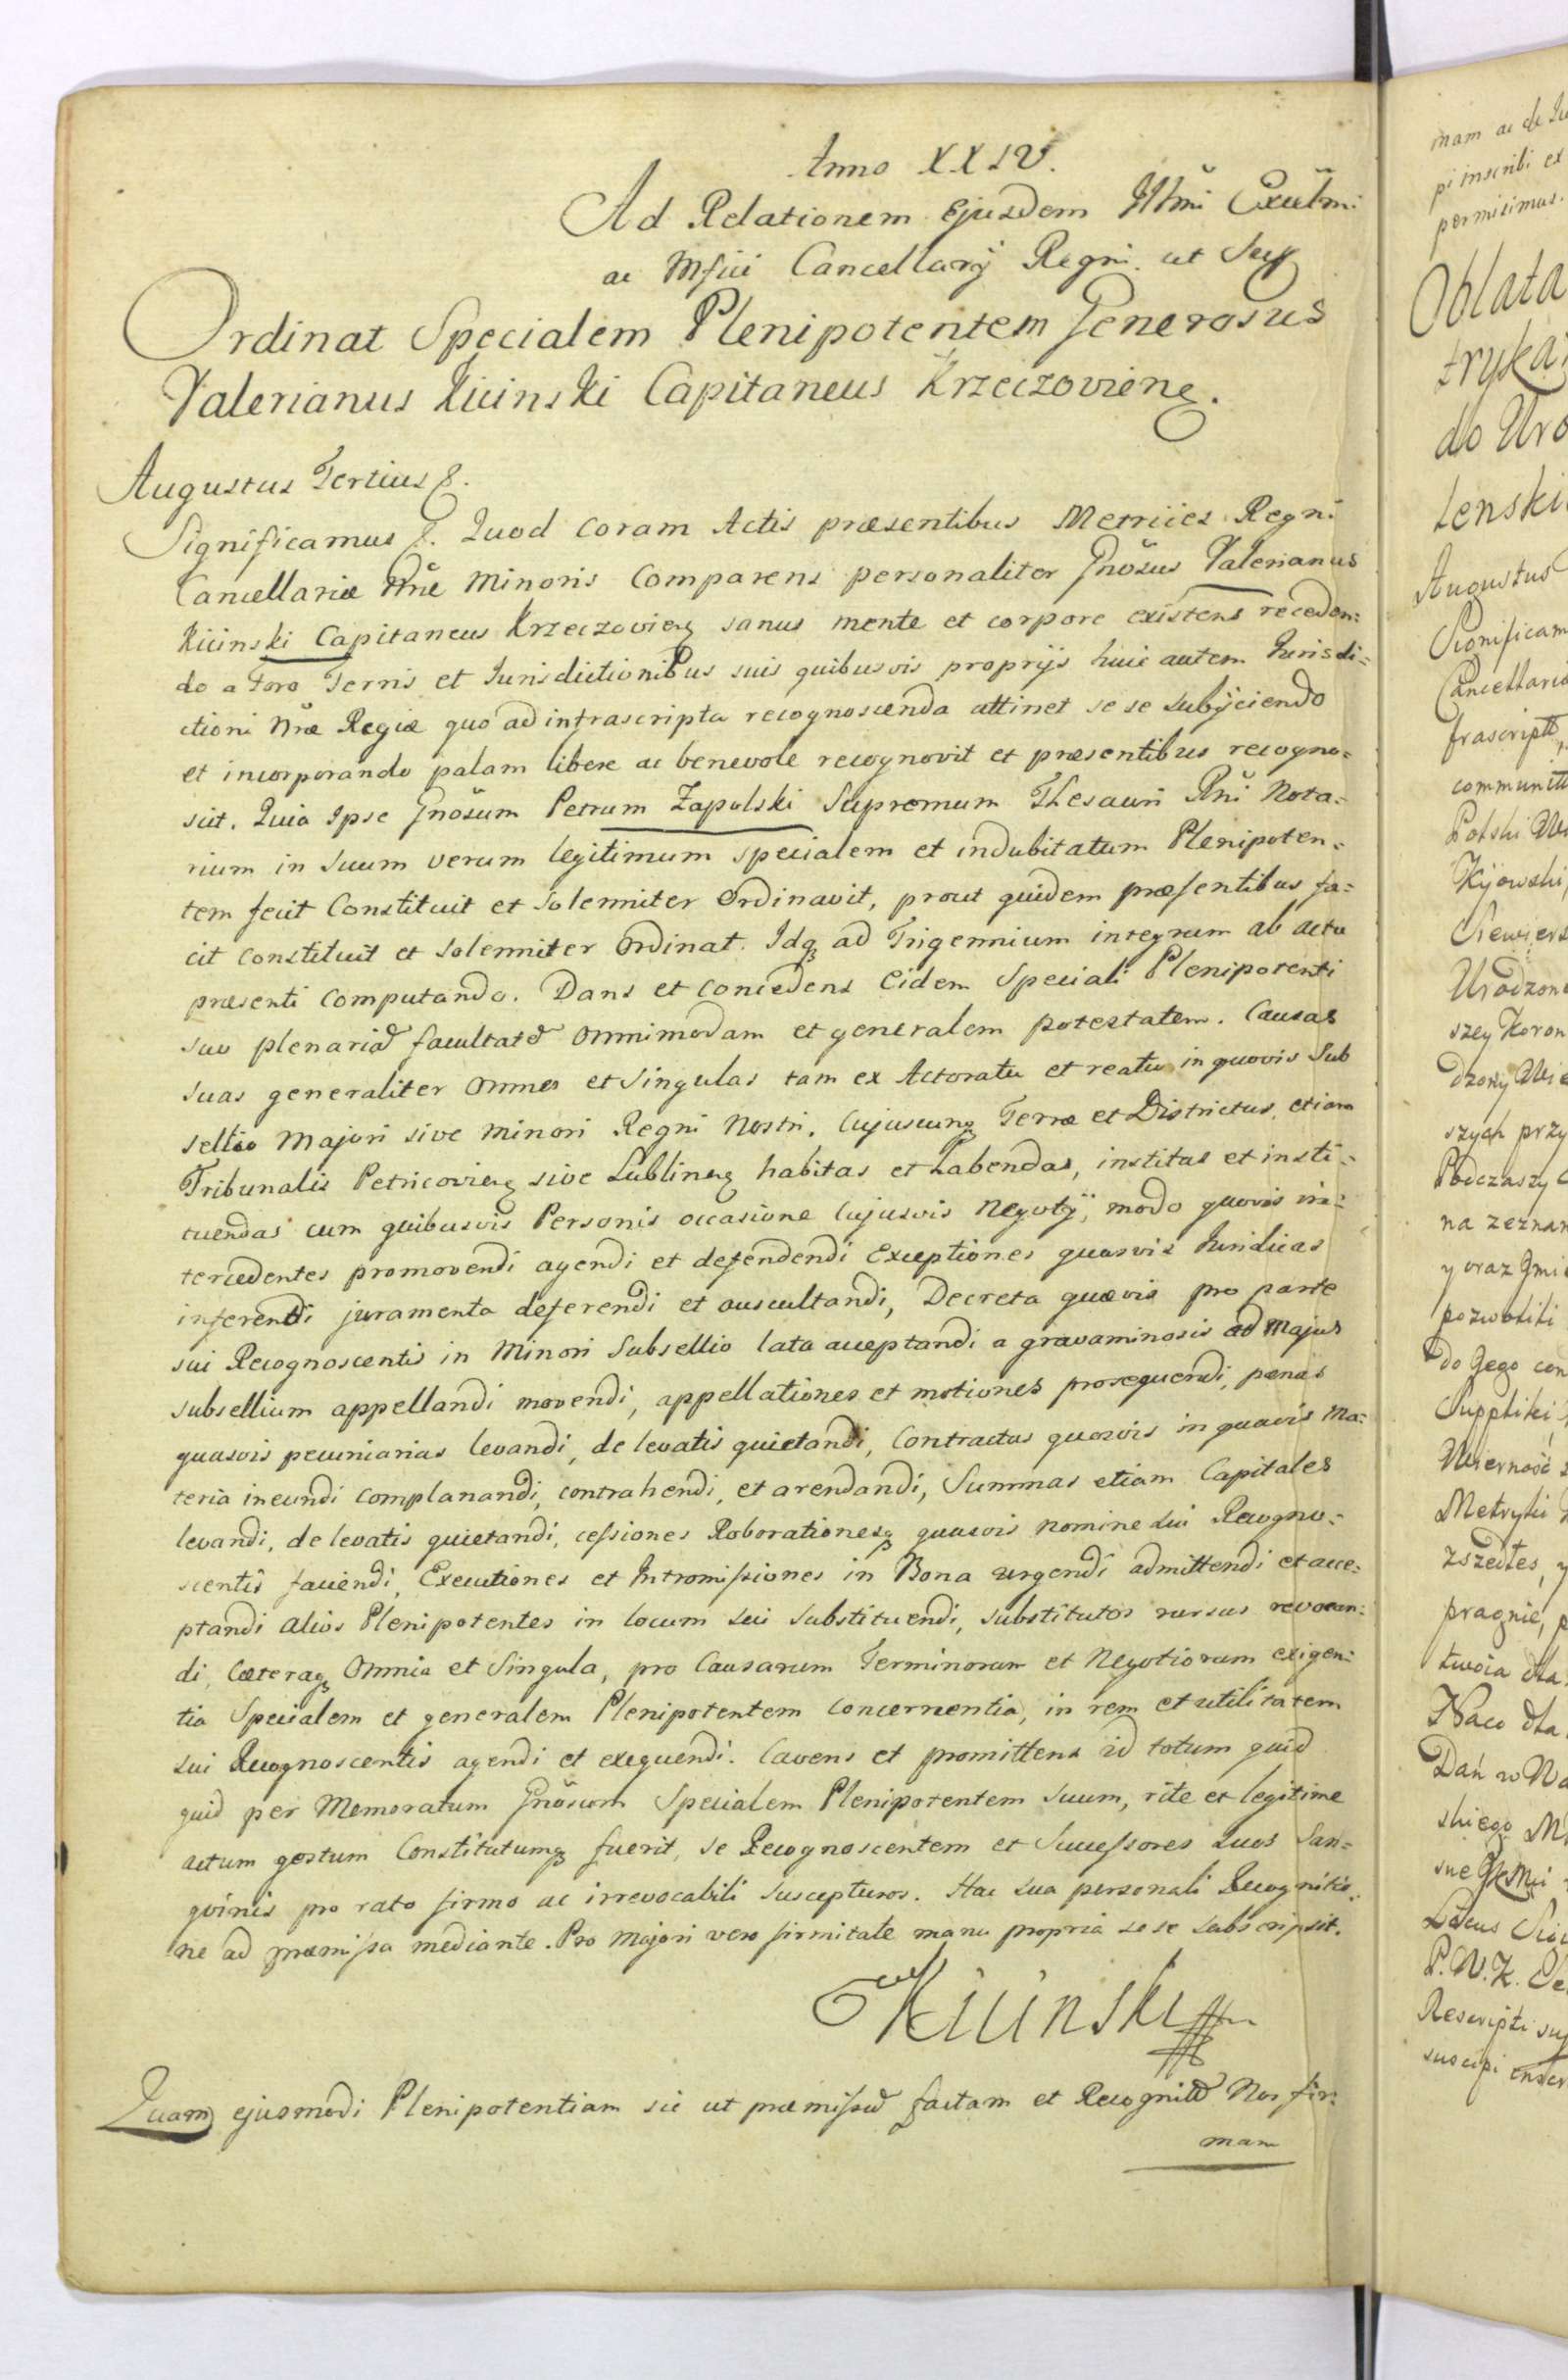 Anno XXIV.
Ad Relationem Ejusdem Illmi Excellmi
ac Mfici Cancellarij Regni ut Sup
Ordinat Specialem Plenipotentem Generosus
Valerianus Kicinski Capitaneus Krzeczoviens.
Augustus Tertius &.
Significamus &. Quod coram Actis præsentibus Metrices Regni
Cancellariæ Nræ Minoris Comparens personaliter Gnõsus Valerianus
Kicinski Capitaneus Krzeczoviens sanus mente et corpore existens receden=
do a Foro Terris et Jurisdictionibus suis quibusvis proprijs huic autem Jurisdi=
ctioni Nræ Regiæ quo ad infrascripta recognoscenda attinet se se subijciendo
et incorporando palam libere ac benevole recognovit et præsentibus recogno=
scit. Quia Ipse Gnõsum Petrum Zapolski Supremum Thesauri Rni Nota=
rium in Suum verum legitimum specialem et indubitatum Plenipoten=
tem fecit Constituit et Solenniter Ordinavit, prout quidem præsentibus fa=
cit constituit et solenniter Ordinat. Idq ad Trigennium integrum ab actu
præsenti computando. Dans et concedens Eidem Speciali Plenipotenti
suo plenariã facultatẽ Omnimodam et generalem potestatem. Causas
suas generaliter Omnes et Singulas tam ex Actoratu et reatu in quovis Sub
sellio Majori sive minori Regni Nostri, Cujuscunq Terræ et Districtus, etiam
Tribunalis Petricoviens sive Lublinens habitas et habendas, institas et insti=
tuendas cum quibusvis Personis occasione Cujusvis Negotÿ, modo quovis in=
tercedentes promovendi agendi et defendendi Exceptiones quasvis Juridicas
inferendi juramenta deferendi et auscultandi, Decreta quævis pro parte
sui Recognoscentis in Minori Subsellio lata acceptandi a gravaminosis ad Majus
subsellium appellandi movendi, appellationes et motiones prosequendi, pœnas
quasvis pecuniarias levandi, de levatis quietandi, Contractus quosvis in quavis Ma=
teria ineundi complanandi, contrahendi, et arendandi, Summas etiam Capitales
levandi, de levatis quietandi, cessiones Roborationesq quasvis nomine sui Recogno=
scentis faciendi, Executiones et Intromissiones in Bona urgendi admittendi et acce=
ptandi alios Plenipotentes in locum sui substituendi, substitutos rursus revocan=
di, Cæteraq Omnia et Singula, pro Causarum Terminorum et Negotiorum exigen=
tia Specialem et generalem Plenipotentem concernentia, in rem et utilitatem
sui Recognoscentis agendi et exequendi. Cavens et promittens id totum quid
quid per Memoratum Gnõsum Specialem Plenipotentem Suum, rite et legitime
actum gestum Constitutumq fuerit, se Recognoscentem et Successores suos San=
gvinis pro rato firmo ac irrevocabili suscepturos. Hac sua personali Recognitio=
ne ad præmissa mediante. Pro Majori vero firmitate manu propria se se subscripsit.
Kicinski
Quam ejusmodi Plenipotentiam sic ut præmissũ factam et Recognitã Nos fir=
mam
mam ac de
pi inscribi ex
permisimus.
Oblata
do Uro
Augustus
Significam
Cancellaria
frascriptt
Polski
Kijowski,
Urodzon
szey Koron
szych przy
Podczaszy
na zeznan
y oraz
pozwolili
do Jego con
Suppliki
Wierność
Metryki
zszedłes, y
pragnie, p
twoia dla
Dań w
skiego
Locus
Rescripti
suscipi